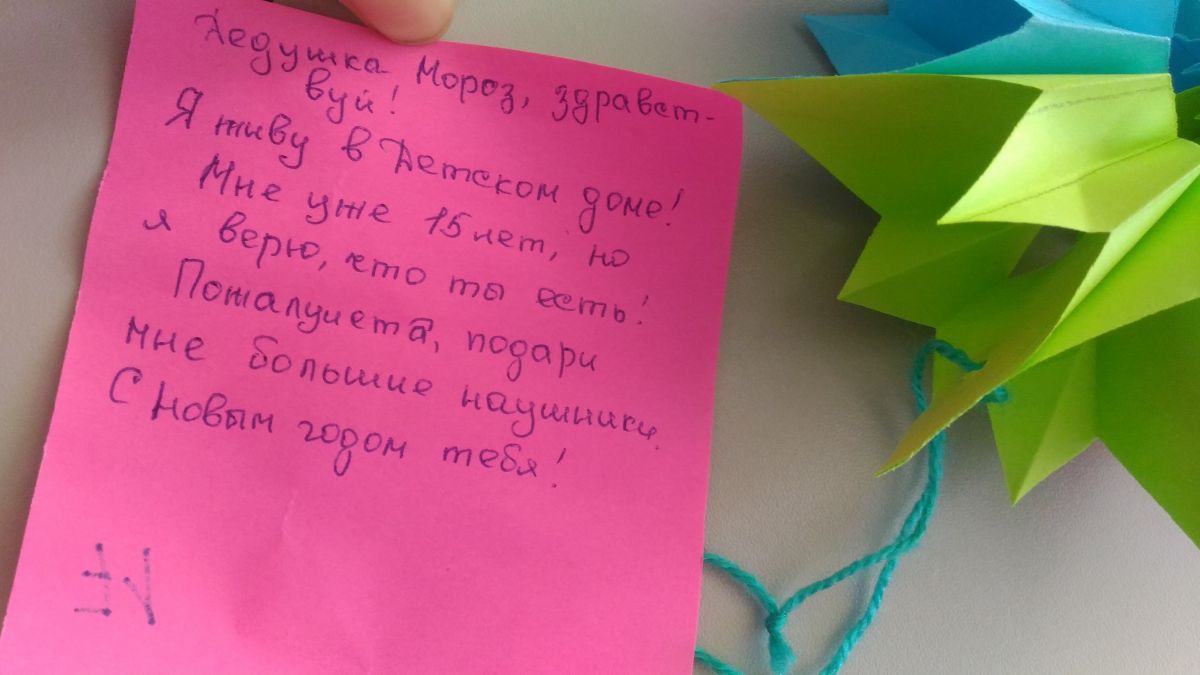 Дедушка Мороз, здравст-
вуй!
Я живу в Детском доме!
Мне уже 15 лет, но
я верю, что ты есть!
Пожалуйста, подари
мне большие наушники.
С Новым годом тебя!